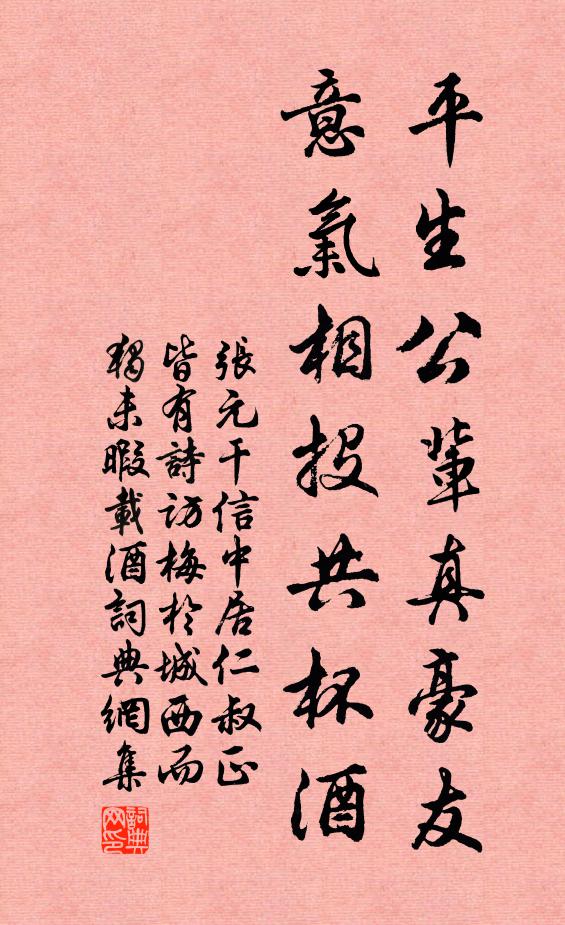 平生公輩真豪友
意氣相投共杯酒
張元干信中居仁叔正
皆有詩訪梅於城西而
獨未暇載酒詞典網集
詞典网印